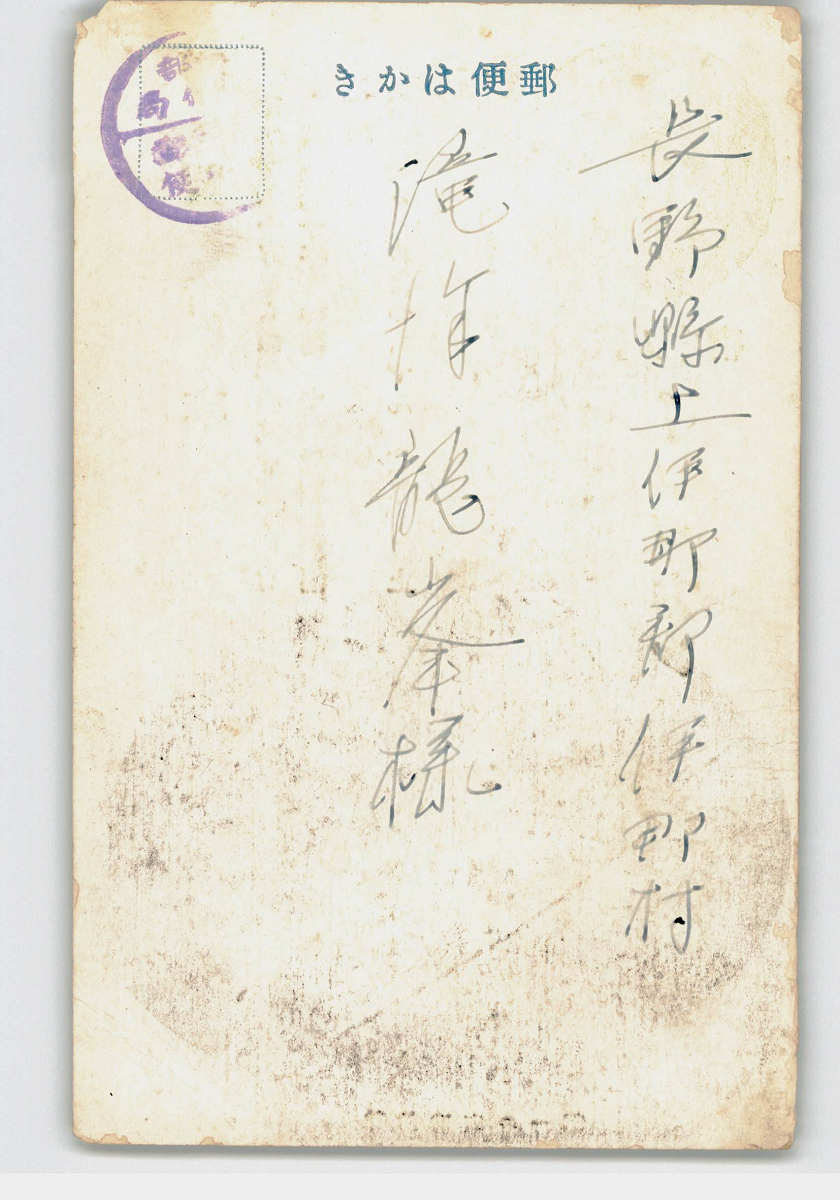 郵便はかき
長野縣上伊那郡伊那村
滝澤龍峯様
郵便